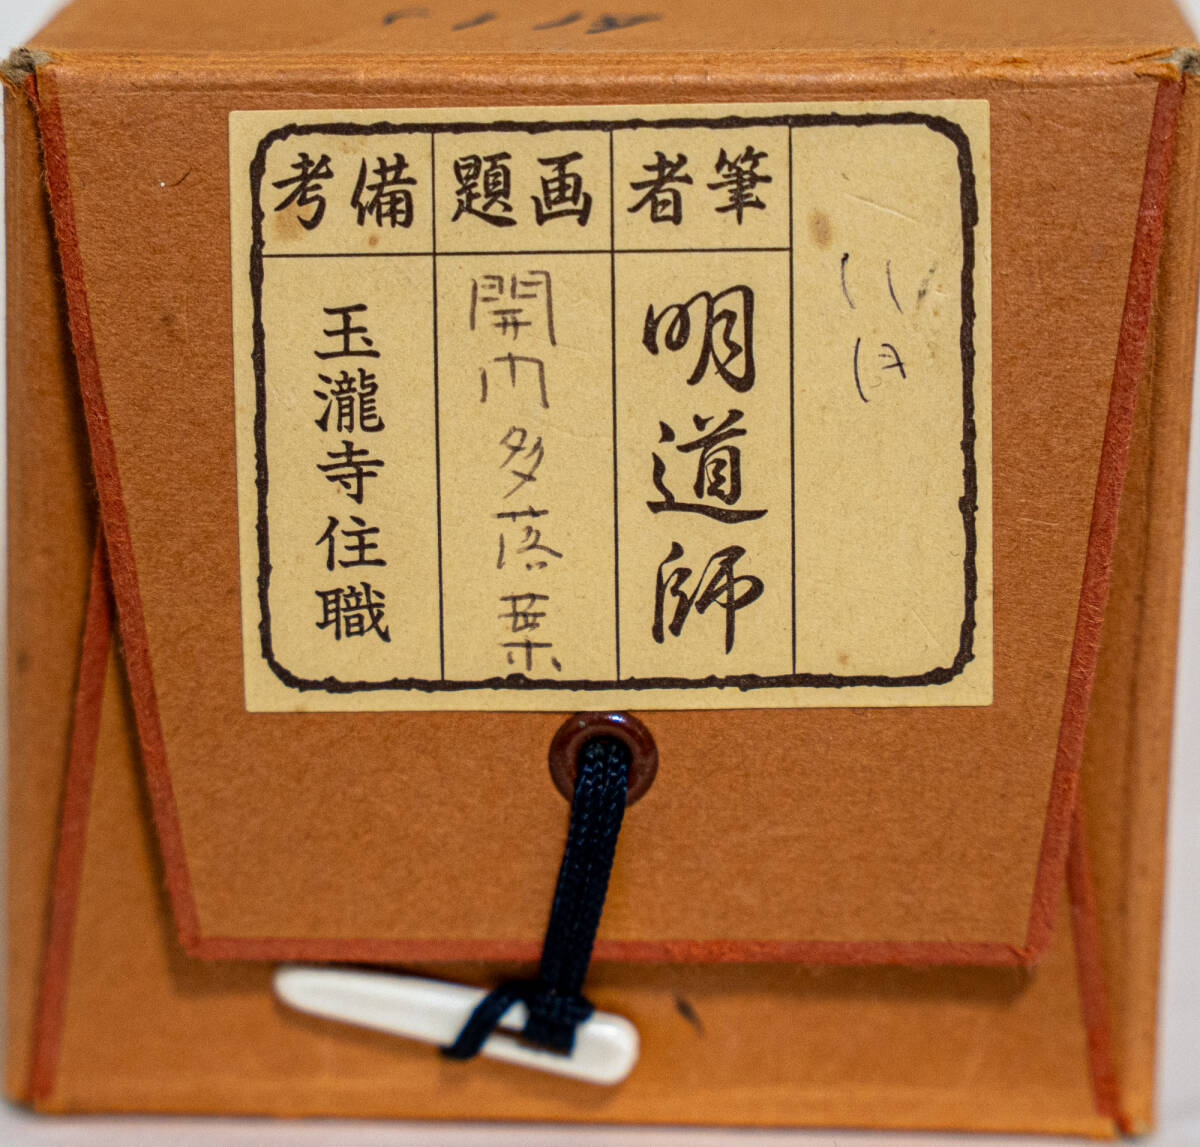 11
月
筆者
明道師
画題
開門多落葉
備考
玉瀧寺住職